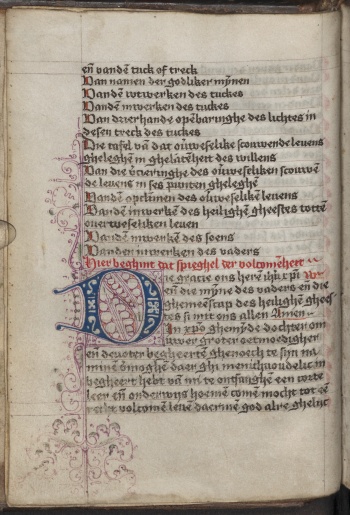 en̄ vandē tuck of treck
Van namen der godliker mȳnen
Vandē wtwerken des tuckes
Vandē inwerken des tuckes
Van drierhande opēbaringhe des lichtes in
desen treck des tuckes
Die tafel vā dat ouweselike scouwende leuens
gheleghē in ghelatēheit des willens
Van die des ouweseliken scouwē
de leuens in ses punten gheleghē
Vandē opclimen des ouweseliken leuens
Vandē inwerkē des heilighē gheestes tottē
ouerweseliken leuen
Vandē inwerkē des soens
Vanden inwerkē des vaders
Hier beghint dat spieghel der volcomēheit
Die gracie ons herē ihū xp̄i
en̄ die mȳne des vaders en̄ die
ghemeēscap des heilighē ghees
tes si mit ons allen Amen
In xp̄o ghemȳde dochter om
uwer groter oetmoedigher
en̄ deuoter begheertē ghenoech te sijn na
mine ꝟmoghē daer ghi menichuoudelic in
begheert hebt vā mi te ontfanghē een corte
leer en̄ onderwijs hoemē comē mocht tot eē
recht volcomē leuē daermē god alre ghelijct